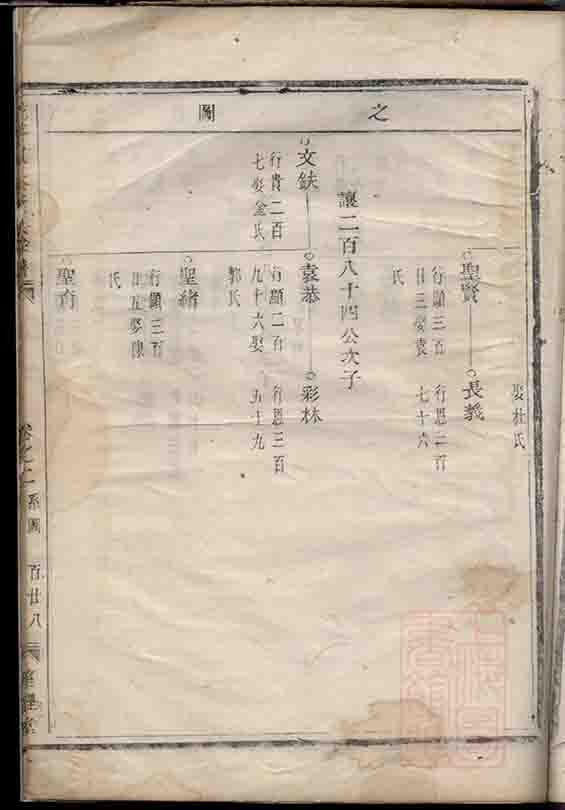 之圖
娶杜氏
聖賢
行顯三百
三娶袁
氏
長義
行恩二百
七十六
讓二百八十四公次子
文鈇
行貴二百
七娶金氏
袁恭
行顯二百
九十六娶
郭氏
彩林
行恩三百
五十九
聖緒
行顯三百
娶陳
氏
聖育
卷之二
系圖
百廿八